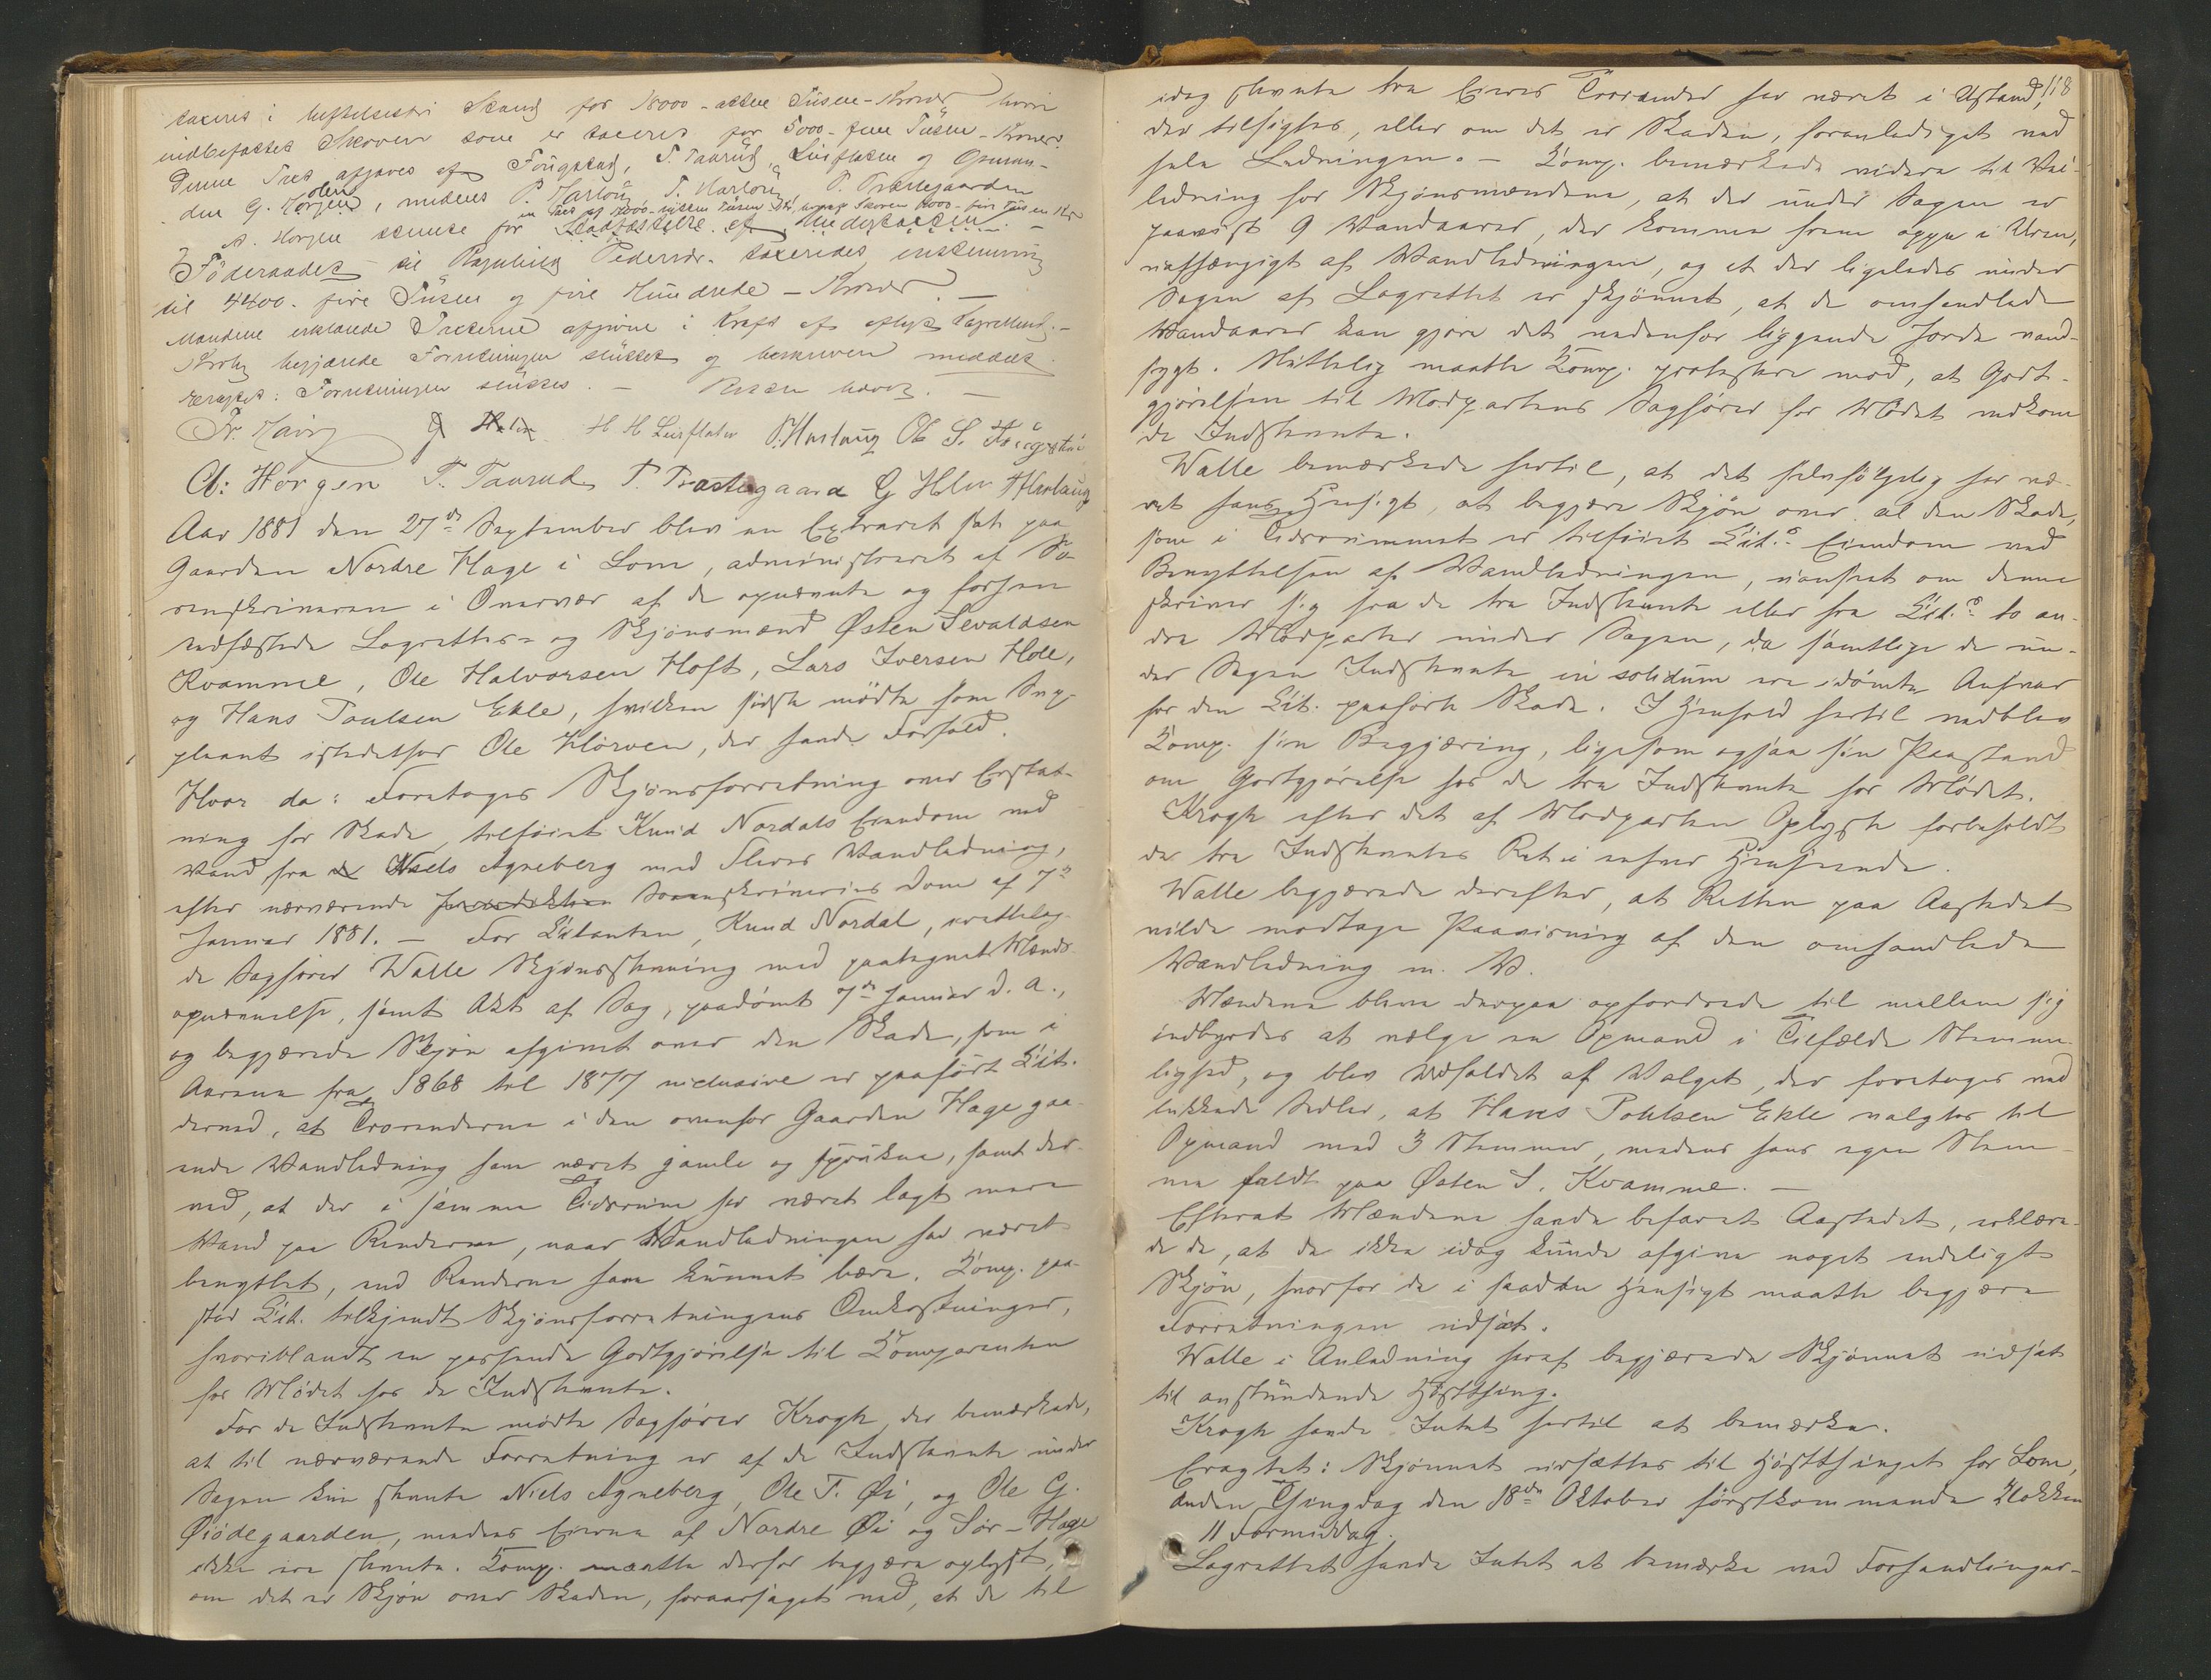 taxeres i heftelsesfri Stand for 18000 - atten Tusen - Kroner hvori
indbefattet Skoven som er taxeret for 5000 - fem Tusen - Kroner.
Denne Taxt afgaves af Fougstad, T. Taarud, Leirflaten og Opman-
den G. Holen, medens P. Harloug T. Harloug, P. Træstegaarden
og A. Horgen stemte for Stadfæstelse af Undertaxten
en Taxt af Kr, hvoraf Skoven fire Tusen Kr
Föderaadet til Ragnhild Pedersdr. taxeredes enstemmig
til 4400 - fire Tusen og fire Hundrede - Kroner. -
Mændene erklærede Taxterne afgivne i Kraft af aflagt Lagrettesed. -
Krohg begjærede Forretningen sluttet og beskreven meddelt.
Eragtet: Forretningen sluttes. - Retten hævet. -
Fr. G Holen H H Leirflaten P. Harloug Ole S. Fougstad
A: Horgen T. Taarud P. Træstegaard G Holen T Harloug
Aar 1881 den 27de September blev en Extraret sat paa
Gaarden Nordre Hage i Lom, administreret af So-
renskriveren i Overvær af de opnævnte og forhen
edfæstede Lagrettes- og Skjönsmænd Østen Sevaldsen
Kvamme, Ole Halvorsen Hoft, Lars Iversen Hole,
og Hans Poulsen Ekle, hvilken sidste mödte som Sup-
pleant istedetfor Ole Flörven, der havde Forfald.
Hvor da: Foretages Skjönsforretning over Erstat-
ning for Skade, tilföiet Knud Nordals Eiendom ved
Vand fra Niels Agneberg med Fleres Vandledning,
efter nærværende Sorenskriveries Dom af 7de
Januar 1881. - For Citanten, Knud Nordal, fremlag-
de Sagförer Walle Skjönsstevning med paategnet Mænds-
opnævnelse, samt Akt af Sag, paadömt 7de Januar d. A.,
og begjærede Skjön afgivet over den Skade, som i
Aarene fra 1868 til 1877 inclusive er paafört Cit.
derved, at Trorenderne i den ovenfor Gaarden Hage gaa-
ende Vandledning have været gamle og sprukne, samt der-
ved, at der i samme Tidsrum har været lagt mere
Vand paa Renderne, naar Vandledningen har været
benyttet, end Renderne have kunnet bære. Comp. paa-
stod Cit. tilkjendt Skjönsforretningens Omkostninger,
hvoriblandt en passende Godtgjörelse til Comparenten
for Mödet hos de Indstevnte.
For de Indstevnte mödte Sagförer Krogh, der bemærkede,
at til nærværende Forretning er af de Indstevnte under
Sagen kun stevnte Niels Agneberg, Ole T. Øi, og Ole G.
Øiödegaarden, medens Eierne af Nordre Øi og Sör-Hage
ikke ere stevnte. Comp. maatte derfor begjære oplyst,
om det er Skjön over Skaden, foraarsaget ved, at de til
118
idag stevnte tre Eieres Trorender har været i Ustand,
der tilsigtes, eller om det er Skaden, foranlediget ved
hele Ledningen. - Comp. bemærkede videre til Vei-
ledning for Skjönsmændene, at der under Sagen er
paavist 9 Vandaarer, der komme frem oppe i Uren,
uafhængigt af Vandledningen, og at der ligeledes under
Sagen af Lagrettet er skjönnet, at de omhandlede
Vandaarer kan gjöre det nedenfor liggende Jorde vand-
sygt. Sluttelig maatte Comp. protestere mod, at Godt-
gjörelsen til Modpartens Sagförer for Mödet vedkom
de Indstevnte.
Walle bemærkede hertil, at det selvfölgelig har væ-
ret hans Hensigt, at begjære Skjön over al den Skade,
som i Tidsrummet er tilföiet Cit.s Eiendom ved
Benyttelsen af Vandledningen, uanseet om denne
skriver sig fra de tre Indstevnte eller fra Cit.s to an-
dre Modparter under Sagen, da samtlige de un-
der Sagen Indstevnte in solidum ere idömte Ansvar
for den Cit. paaförte Skade. I Henhold hertil vedblev
Comp. sin Begjæring, ligesom ogsaa sin Paastand
om Godtgjörelse hos de tre Indstevnte for Mödet.
Krogh efter det af Modparten Oplyste forbeholdt
de tre Indstevntes Ret i enhver Henseende.
Walle begjærede derefter, at Retten paa Aastedet
vilde modtage Paavisning af den omhandlede
Vandledning m. V.
Mændene bleve derpaa opfordrede til mellem sig
indbyrdes at vælge en Opmand i Tilfælde Stemme-
lighed, og blev Udfaldet af Valget, der foretoges ved
lukkede Sedler, at Hans Poulsen Ekle valgtes til
Opmand med 3 Stemmer, medens hans egen Stem-
me faldt paa Østen S. Kvamme. -
Efterat Mændene havde befaret Aastedet, erklære-
de de, at de ikke idag kunde afgive noget endeligt
Skjön, hvorfor de i saadan Hensigt maatte begjære
Forretningen udsat.
Walle i Anledning heraf begjærede Skjönnet udsat
til anstundende Höstthing.
Krogh havde Intet hertil at bemærke.
Eragtet: Skjönnet udsættes til Höstthinget for Lom,
anden Thingdag den 18de Oktober förstkommende Klokken
11 Formiddag.
Lagrettet havde Intet at bemærke ved Forhandlinger-